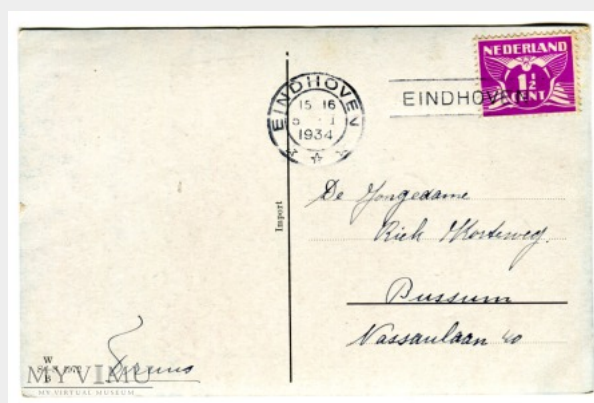 NEDERLAND
1½
CENT
EINDHOVEN
15 16
1934
EINDHOVEN
Import
De Jongedame
Riek Korteweg.
Bussum
Nassaulaan 40
W
B
MYVIMU
MY VIRTUAL MUSEUM